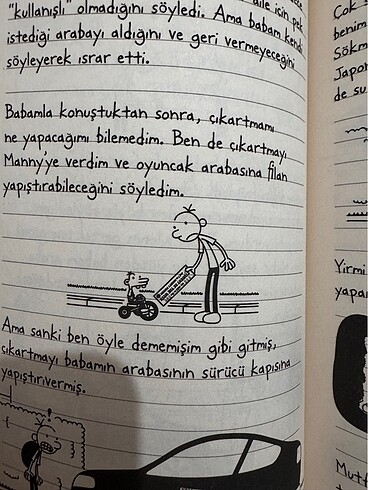 "kullanışlı" olmadığını söyledi. Ama babam kendi
aile için pek
istediği arabayı aldığını ve geri vermeyeceğini
söyleyerek ısrar etti.
Babamla konuştuktan sonra, çıkartmamı
ne yapacağımı bilemedim. Ben de çıkartmayı
Manny'ye verdim ve oyuncak arabasına filan
yapıştırabileceğini söyledim.
Ama sanki ben öyle dememişim gibi gitmiş,
çıkartmayı babamın arabasının sürücü kapısına
yapıştırıvermiş.
Çok
benim
Sökm
Japor
de su
Yirmi
yapa
Mutf